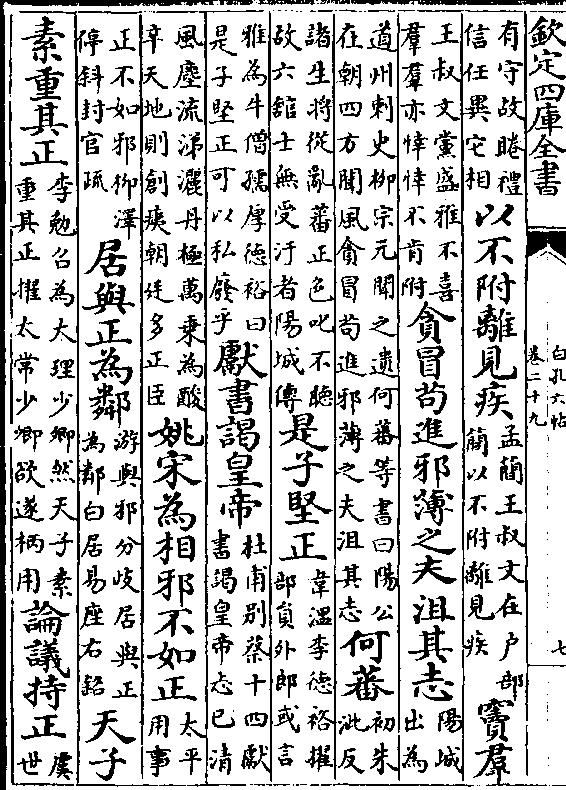 欽定四庫全書
白孔六帖
卷二十九
七
有守故睠禮
信任異它相
以不附離見疾
孟簡王叔文在户部
簡以不附離見疾
竇羣
王叔文黨盛雅不喜
羣羣亦悻悻不肯附
貪冒苟進邪薄之夫沮其志
陽城
出為
道州刺史柳宗元聞之遺何蕃等書曰陽公
在朝四方聞風貪冒苟進邪薄之夫沮其志
何蕃
初朱
泚反
諸生將從亂蕃正色叱不聽
故六舘士無受汙者陽城傳
是子堅正
韋溫李德裕擢
部員外郎或言
雅為牛僧孺厚德裕曰
是子堅正可以私廢乎
獻書謁皇帝
杜甫别蔡十四獻
書謁皇帝志已清
風塵流涕灑丹極萬乗為酸
卒天地則創痍朝廷多正臣
姚宋為相邪不如正
太平
用事
正不如邪柳澤
停斜封官疏
居與正為鄰
游與邪分岐居與正
為鄰白居易座右銘
天子
素重其正
李勉召為大理少卿然天子素
重其正擢太常少卿欲遂柄用
論議持正
虞
世